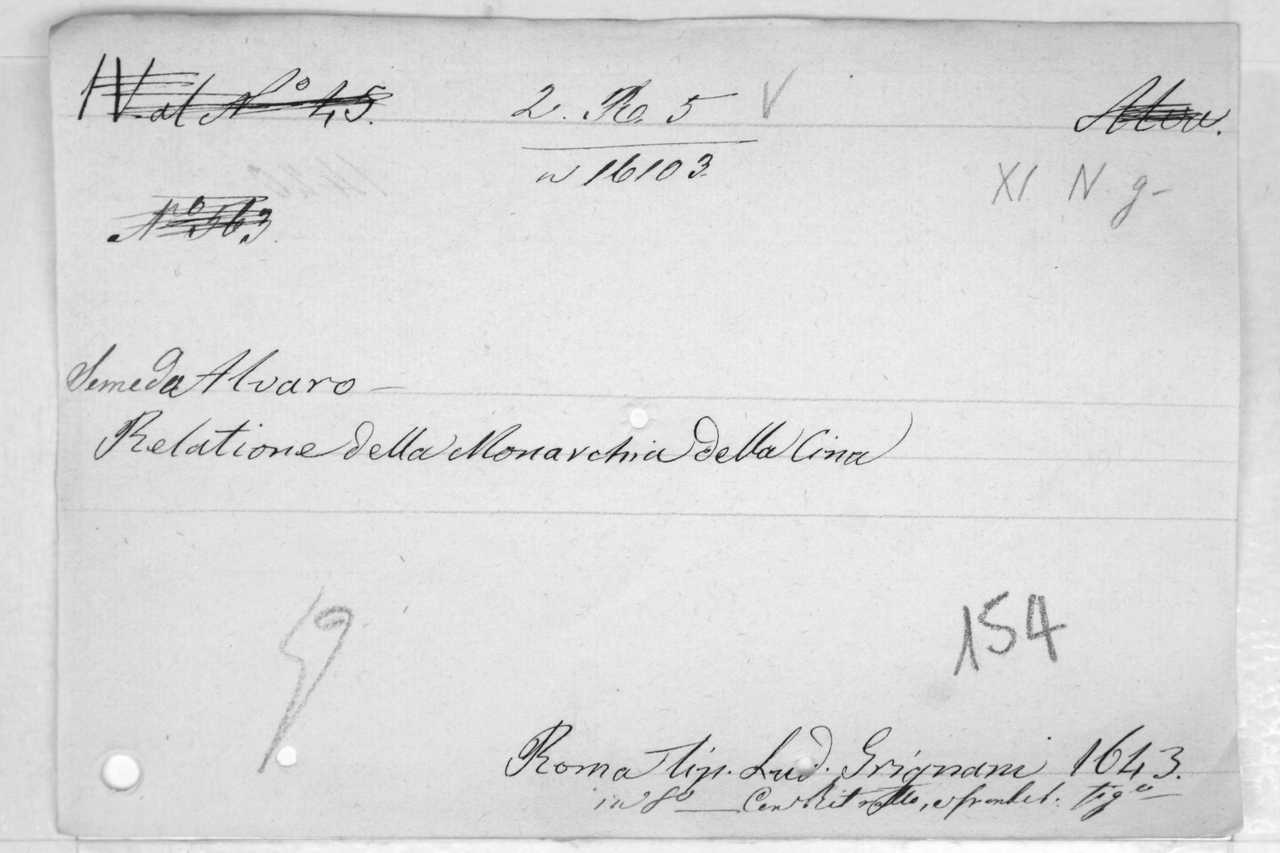 IV. al Nº 45.
2. R. 5 V
n 16103.
XI N. g-
Nº 563.
Semeda Alvaro —
Relatione della Monarchia della Cina
154
Roma Tip. Lud. Grignani 1643.
in 8º — Con Ritratto, e frontesp.